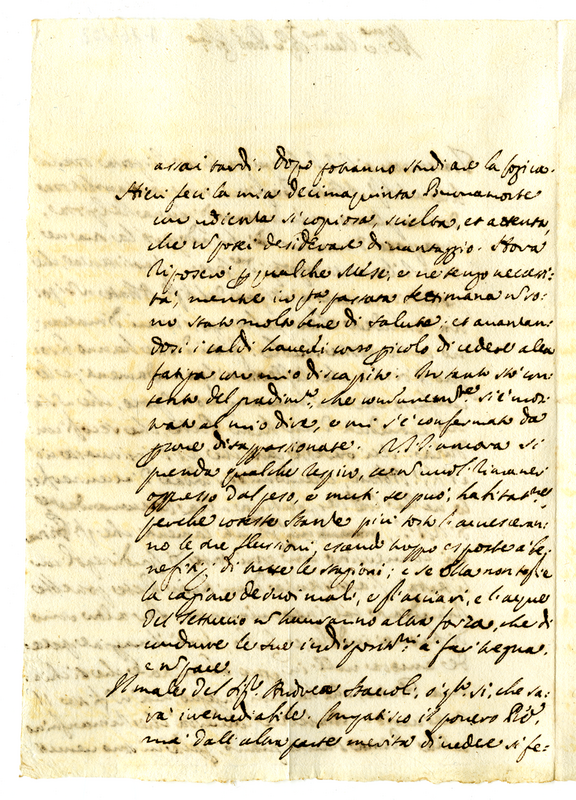 assai tardi. Dopo potranno studiare la logica.
Hieri feci la mia decimaquinta Buonamorte
con udienza sì copiosa, scielta, et attenta,
che nõ potei desiderare di vantaggio. Hora
riposerò qualche Mese, e ne tengo necessi-
tà; mentre in passata settimana nõ so-
no stato molto bene di salute: et avanzan-
dosi i caldi haverei corso di cedere alla
fatiga con mio discapito. In tanto stò con-
tento del, che comunem.te si è mos-
trato al mio dire, e mi s'è confermato da
disappassionate. V.S. ancora si
prenda qualche respiro, se nõ vuol rimaner
oppresso dal peso, e muti se può,
perche coteste stanze più tosto accresceran-
no le sue flussioni, essendo troppo esposte a'
di tutte le stagioni; e se ella non toglie
la cagione de suoi mali, e, e l'acque
del Tettuccio nõ havranno altra forza, che di
condurre le sue à far tregua,
e nõ pace.
Il male del Sig.r Andrea Staccoli, che sa-
rà irremediabile. Compatisco il povero
mà dall'altra parte merita di vedere si fe-